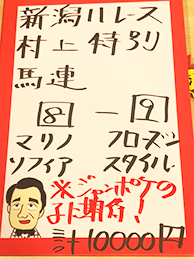 新潟11レース
村上特別
馬連
8 — 9
マリノ フローズン
ソフィア スタイル
※ジャンポケの
ように期待!
10000円